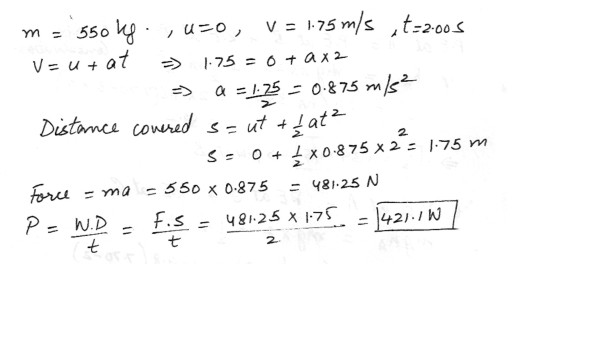 m = 550 kg. , u=0, v = 1.75 m/s , t=2.00s
V = u + at ⇒ 1.75 = 0 + a×2
⇒ a = 1.75/2 = 0.875 m/s²
Distance covered s = ut + 1/2 at²
s = 0 + 1/2 × 0.875 × 2² = 1.75 m
Force = ma = 550 × 0.875 = 481.25 N
P = W.D/t = F.S/t = 481.25 × 1.75/2 = 421.1 W